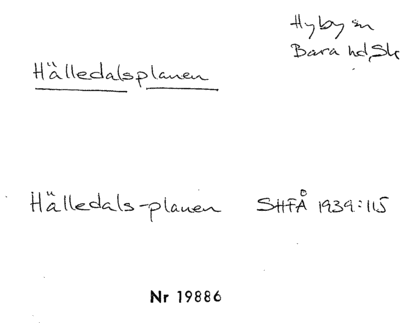 Hyby sn
Bara hd, Sk
Hälledalsplanen
Hälledals-planen SHFÅ 1939:115
Nr 19886